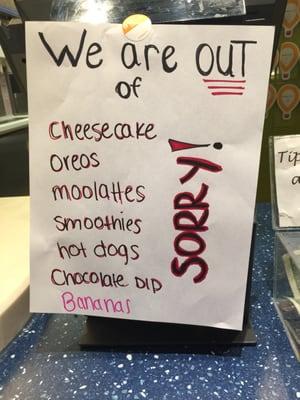 We are OUT
of
Cheesecake
Oreos
moolattes
Smoothies
hot dogs
Chocolate Dip
Bananas
SORRY!
Tip
a